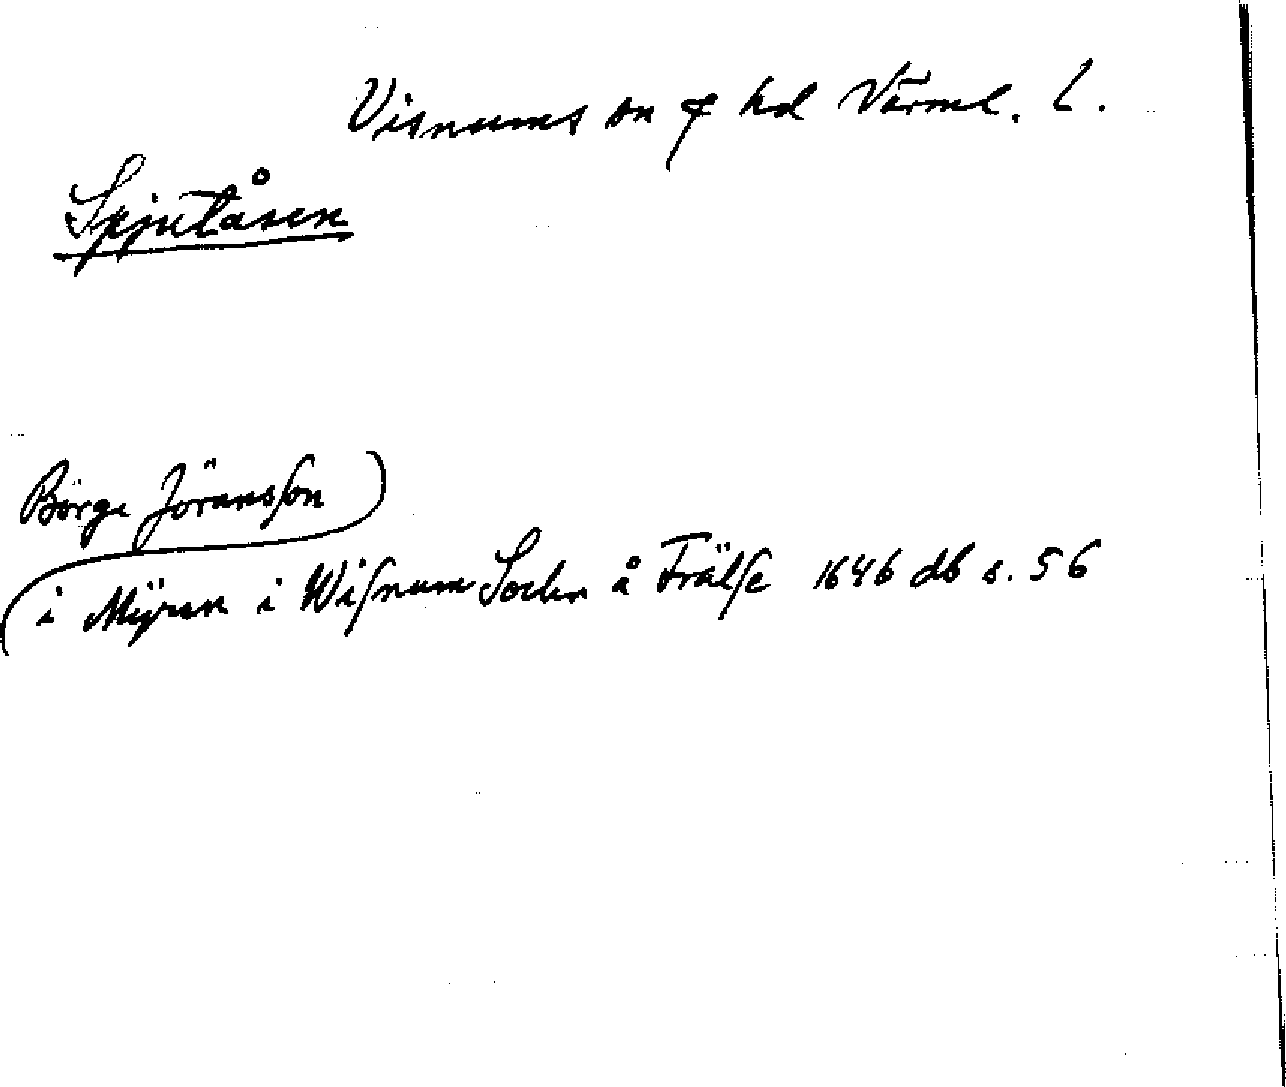 Visnums sn o hd Värml. L.
Spjutåsen
Börge Jöransson
i Mÿren i Wisnum Sochn å Frälse 1646 db s. 56